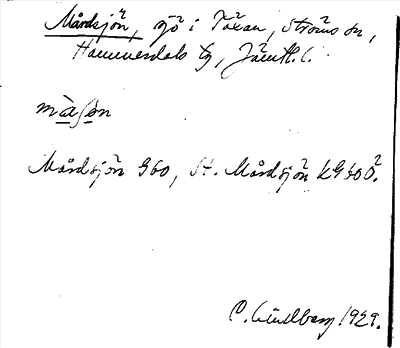 Mårdsjön, sjö i Täxan, Ströms sn,
Hammerdals tg, Jämtl. l.
màʃən
Mårdsjön G60, St. Mårdsjön kG60Ö².
O. Lindberg 1929.